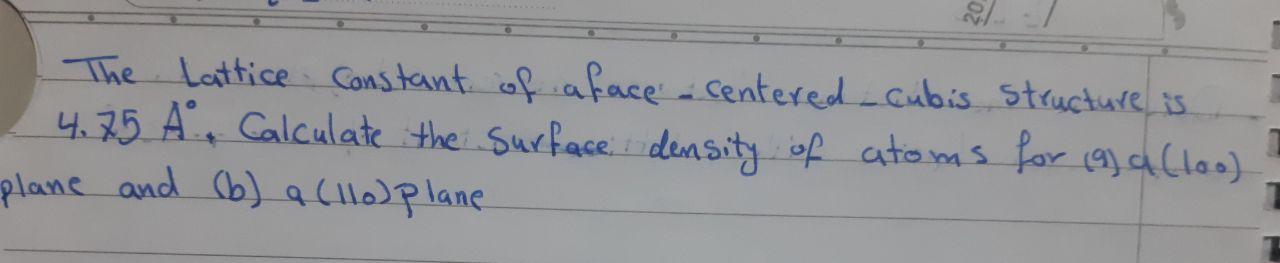 20/
The Lattice Constant of aface-centered-cubis structure is
4.75 A°. Calculate the surface density of atoms for (a) a (100)
plane and (b) a (110) plane